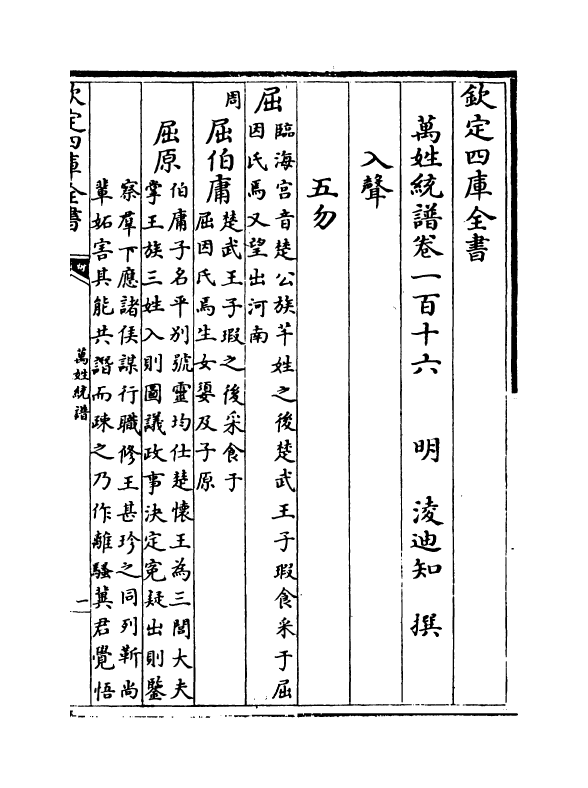 欽定四庫全書
萬姓統譜卷一百十六　　明　淩迪知　撰
入聲
五勿
屈
臨海宫音楚公族芊姓之後楚武王子瑕食采于屈
因氏焉又望出河南
周
屈伯庸
楚武王子瑕之後采食于
屈因氏焉生女嬃及子原
屈原
伯庸子名平别號靈均仕楚懷王為三閭大夫
掌王族三姓入則圖議政事決定寃疑出則鑒
察羣下應諸侯謀行職修王甚珍之同列靳尚
輩妬害其能共譖而疎之乃作離騷冀君覺悟
欽定四庫全書
萬姓統譜
一